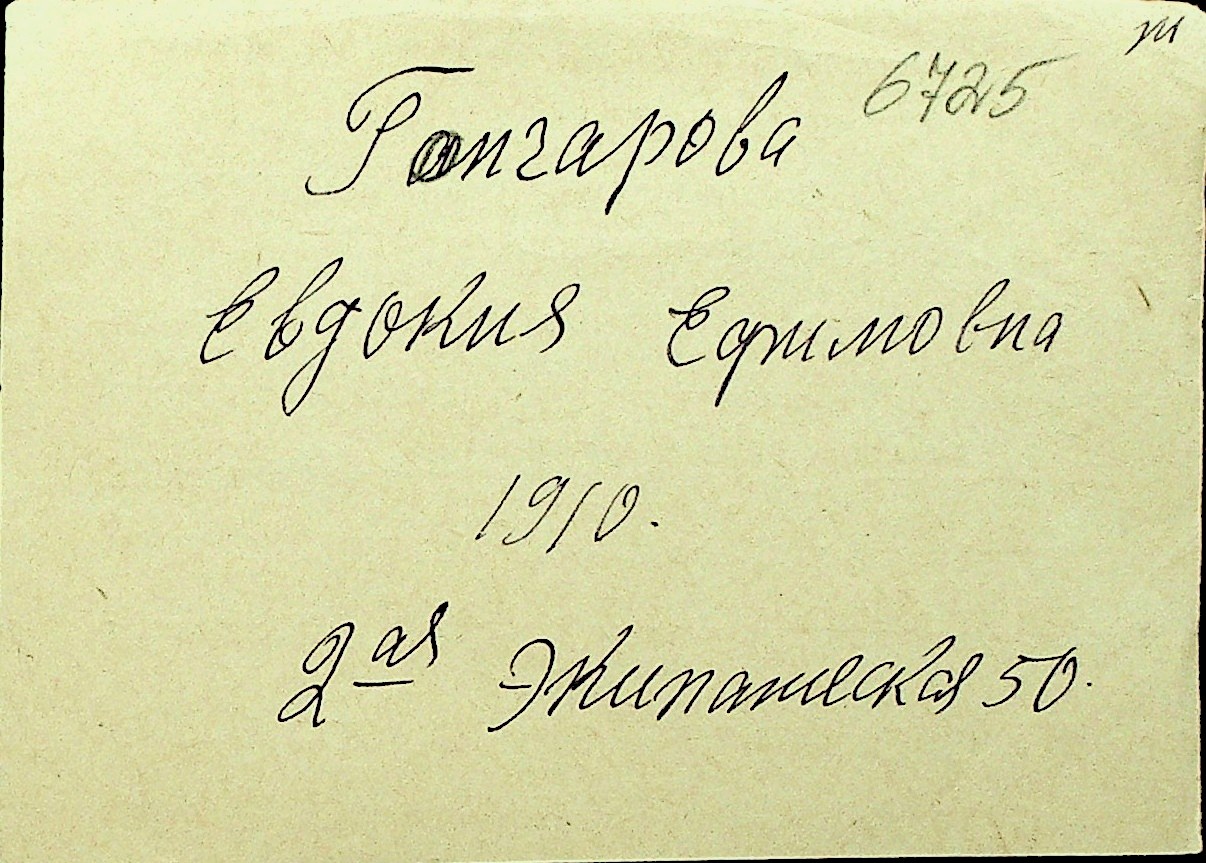 6725
Гончарова
Евдокия Ефимовна
1910.
2ая Экипажеская 50.